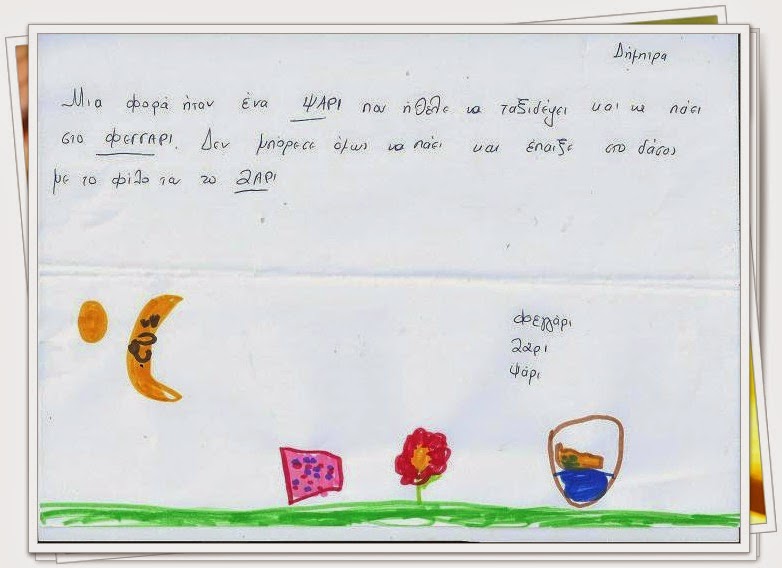 Δήμητρα
Μια φορά ήταν ένα ΨΑΡΙ που ήθελε να ταξιδέψει και να πάει
στο ΦΕΓΓΑΡΙ. Δεν μπόρεσε όμως να πάει και έπαιξε στο δάσος
με το φίλο του το ΖΑΡΙ
Φεγγάρι
Ζάρι
Ψάρι